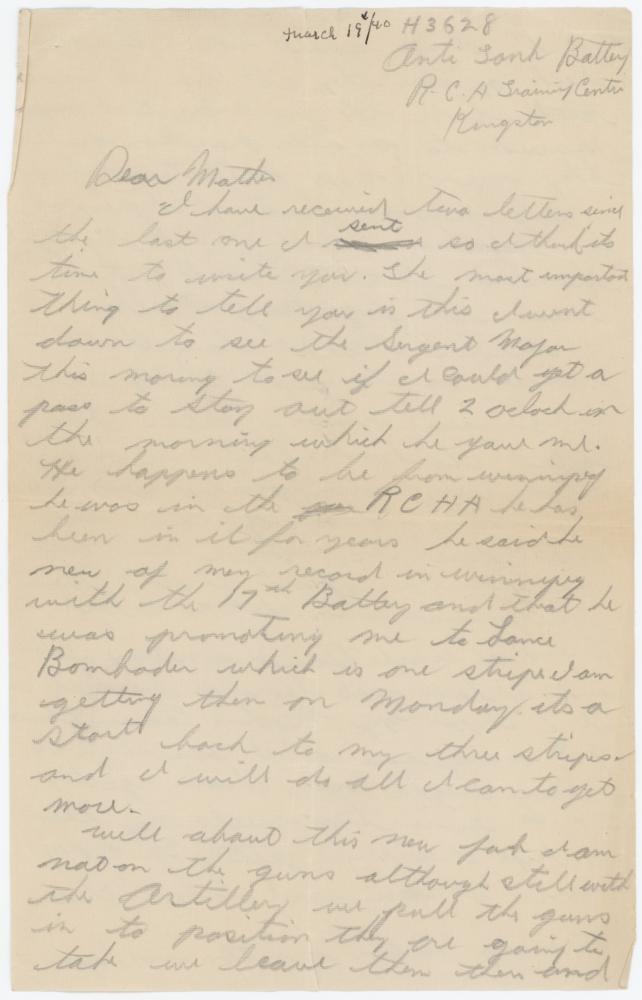 March 19th/40 H3628
Anti Tank Battery
R.C.A Training Centre
Kingston
Dear Mother
I have received two letters since
the last one I sent so I think its
time to write you. The most important
thing to tell you is this I went
down to see the Sergent Major
this moring to see if I could get a
pass to stay out tell 2 oclock in
the morning which he gave me.
He happens to be from winnipeg
he was in the RCHA he has
been in it for years he said he
new of my record in winnipeg
with the 17th Battery and that he
was promoting me to Lance
Bombader which is one stripe I am
getting then on Monday. its a
start back to my three stripes
and I will do all I can to get
more.
well about this new job I am
not on the guns although still with
the Artillery we pull the guns
in to position they are going to
take we leave them then and